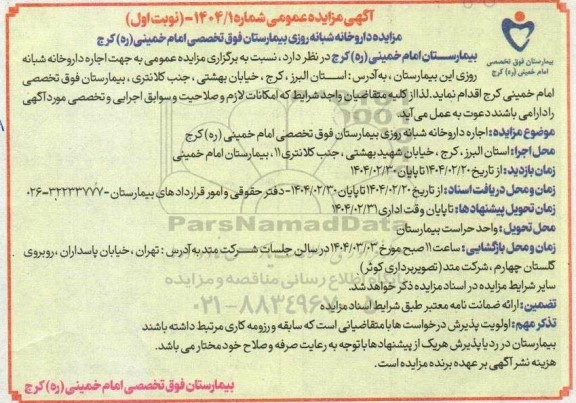 آگهی مزایده عمومی شماره ۱۴۰۴/۱- (نوبت اول)
مزایده داروخانه شبانه روزی بیمارستان فوق تخصصی امام خمینی (ره) کرج
بیمارستان فوق تخصصی
امام خمینی (ره) کرج
بیمارستان امام خمینی (ره) کرج در نظر دارد ، نسبت به برگزاری مزایده عمومی به جهت اجاره داروخانه شبانه
روزی این بیمارستان ، به آدرس : استان البرز ، کرج ، خیابان بهشتی ، جنب کلانتری ، بیمارستان فوق تخصصی
امام خمینی کرج اقدام نماید. لذا از کلیه متقاضیان واجد شرایط که امکانات لازم و صلاحیت و سوابق اجرایی و تخصصی مورد آگهی
را دارا می باشند دعوت به عمل می آید.
موضوع مزایده : اجاره داروخانه شبانه روزی بیمارستان فوق تخصصی امام خمینی (ره) کرج
محل اجرا : استان البرز ، کرج ، خیابان شهید بهشتی ، جنب کلانتری ۱۱ ، بیمارستان امام خمینی
زمان بازدید : از تاریخ ۱۴۰۴/۰۲/۲۰ تا پایان ۱۴۰۴/۰۲/۳۰
زمان و محل دریافت اسناد : از تاریخ ۱۴۰۴/۰۲/۲۰ تا پایان ۱۴۰۴/۰۲/۳۰- دفتر حقوقی و امور قراردادهای بیمارستان -۳۲۲۳۳۷۷۷-۰۲۶
زمان تحویل پیشنهادها : تا پایان وقت اداری ۱۴۰۴/۰۲/۳۱
محل تحویل : واحد حراست بیمارستان
زمان و محل بازگشایی : ساعت ۱۱ صبح مورخ ۱۴۰۴/۰۳/۰۳ در سالن جلسات شرکت متد به آدرس : تهران ، خیابان پاسداران ، روبروی
گلستان چهارم ، شرکت متد ( تصویربرداری کوثر)
سایر شرایط مزایده در اسناد مزایده ذکر خواهد شد.
تضمین : ارائه ضمانت نامه معتبر طبق شرایط اسناد مزایده
تذکر مهم : اولویت پذیرش درخواست ها با متقاضیانی است که سابقه و رزومه کاری مرتبط داشته باشند
بیمارستان در رد یا پذیرش هریک از پیشنهادها با توجه به رعایت صرفه و صلاح خود مختار می باشد.
هزینه نشر آگهی بر عهده برنده مزایده است.
بیمارستان فوق تخصصی امام خمینی (ره) کرج
ParsNamadData
پایگاه اطلاع رسانی مناقصه و مزایده